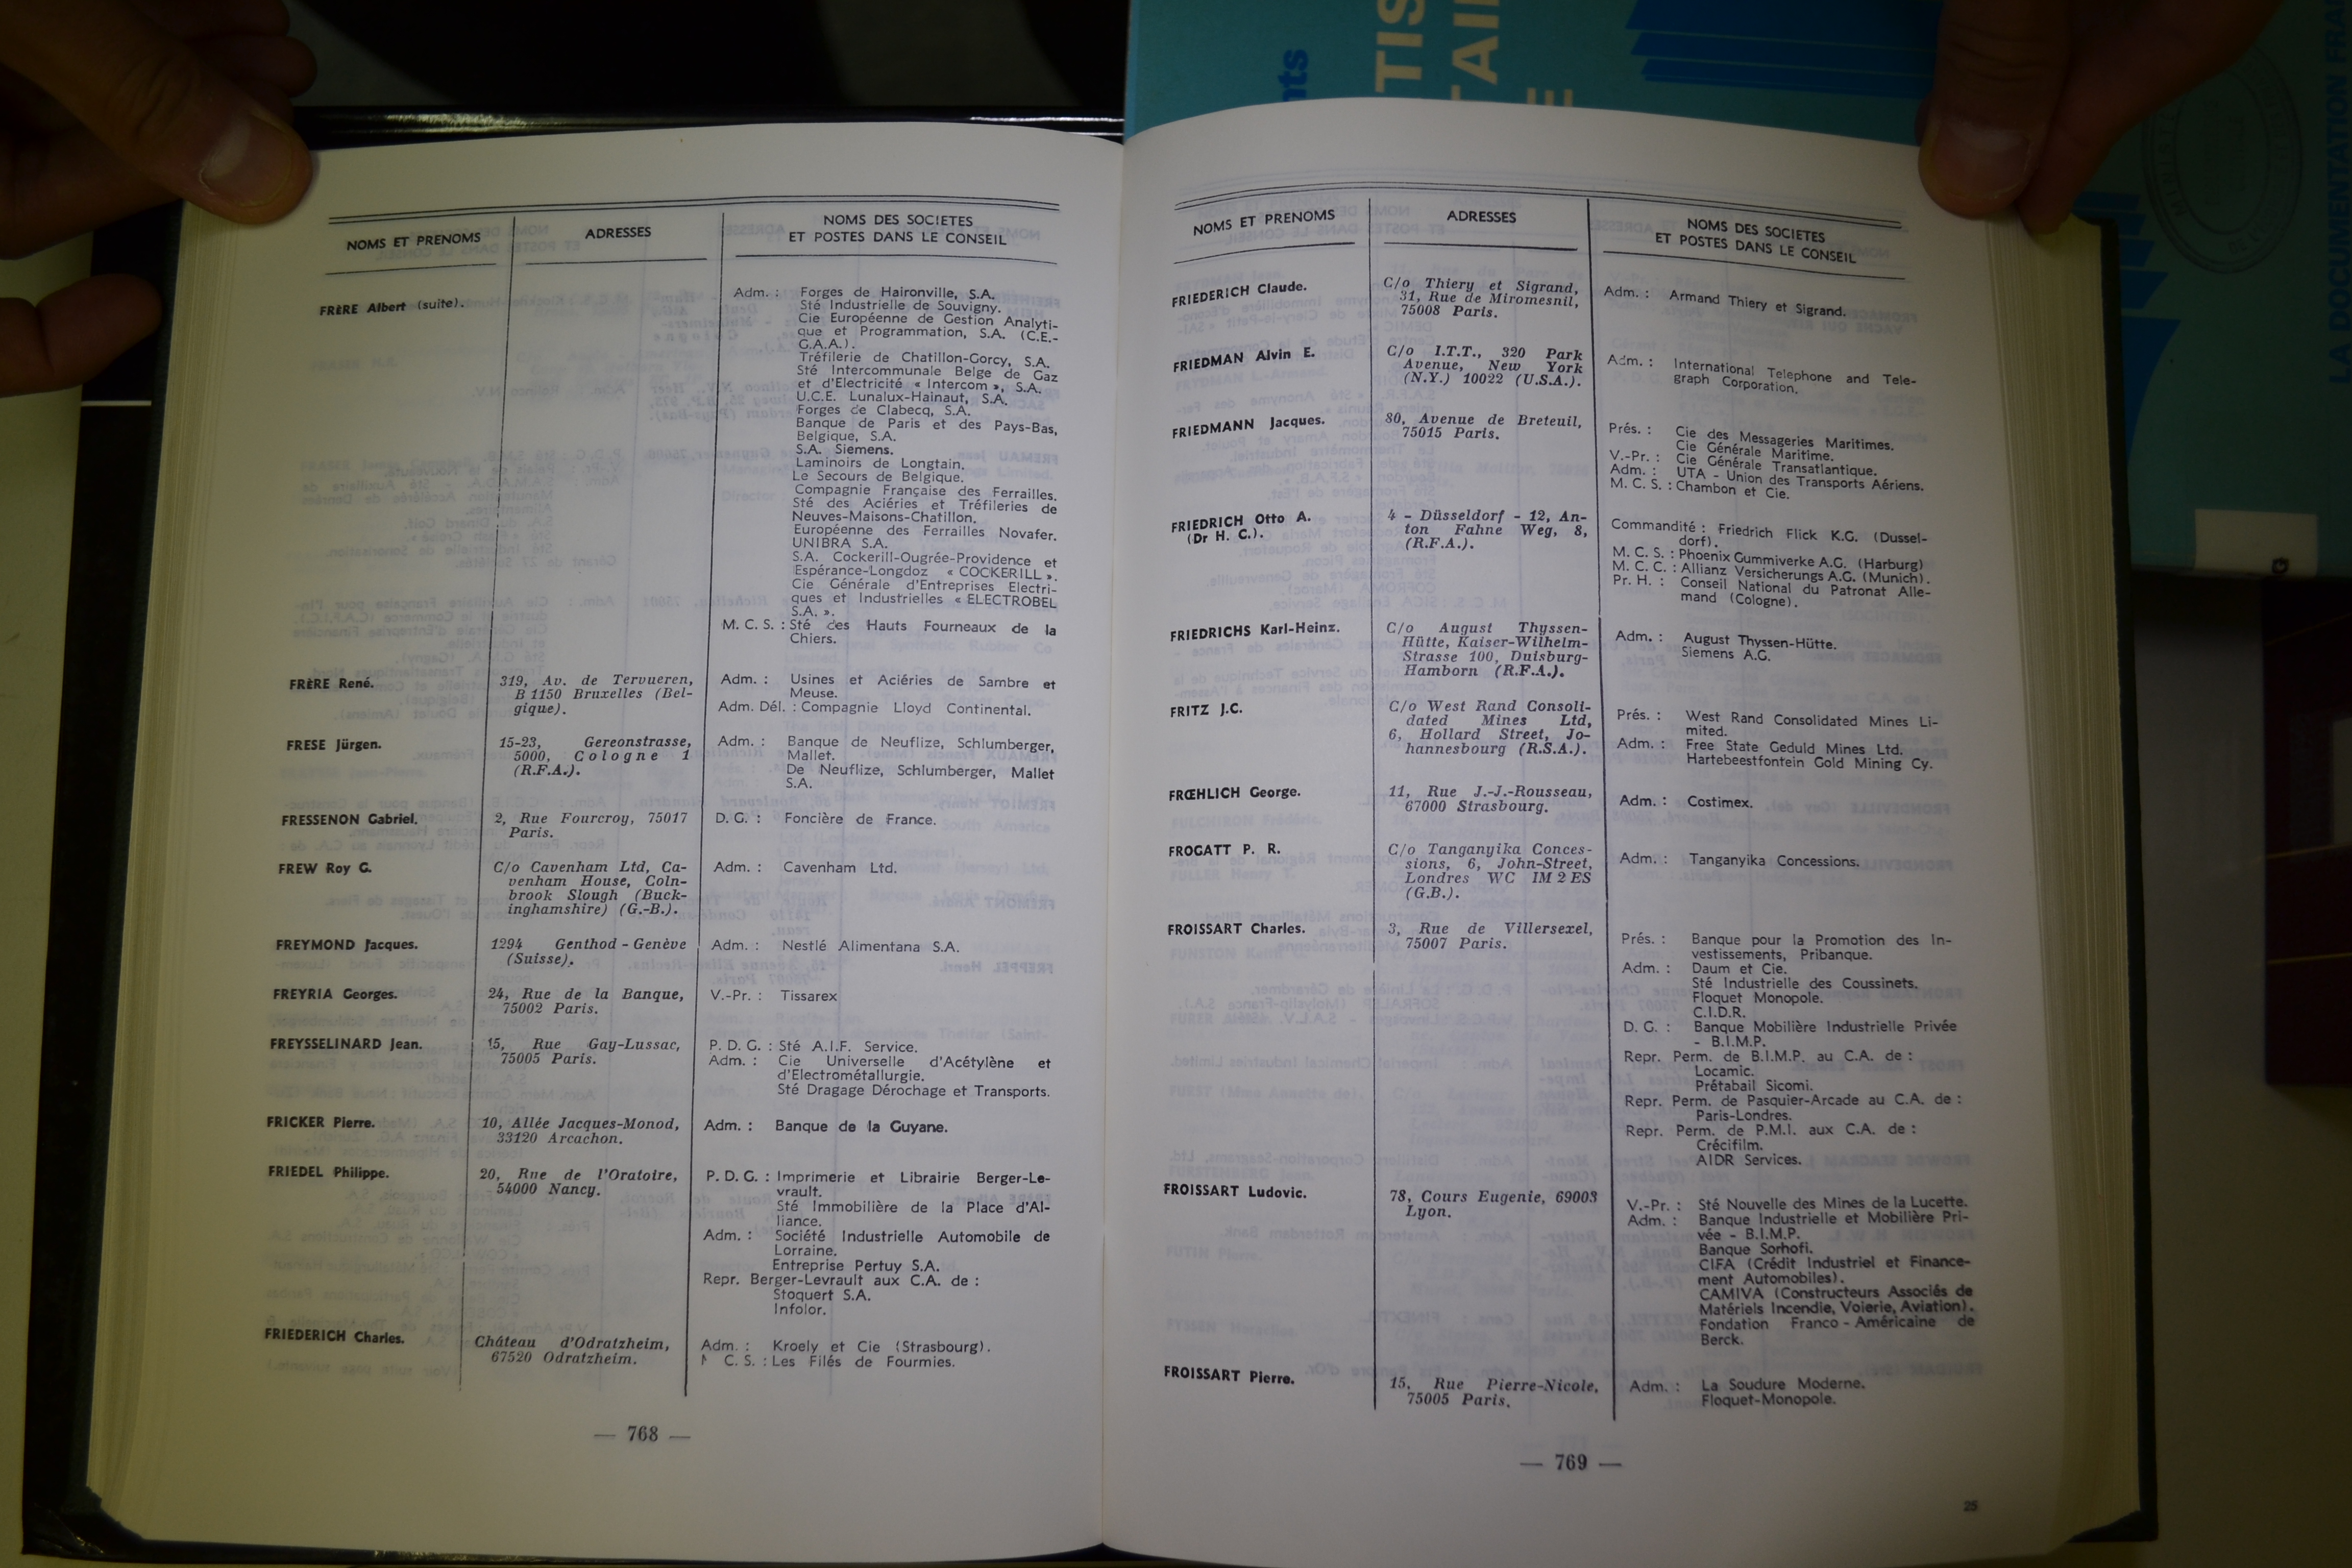 NOMS ET PRENOMS
ADRESSES
NOMS DES SOCIETES
ET POSTES DANS LE CONSEIL
FRÈRE Albert (suite).
Adm. : Forges de Haironville, S.A.
Sté Industrielle de Souvigny.
Cie Européenne de Gestion Analyti-
que et Programmation, S.A. (C.E.-
G.A.A.).
Tréfilerie de Chatillon-Gorcy, S.A.
Sté Intercommunale Belge de Gaz
et d'Electricité « Intercom », S.A.
U.C.E. Lunalux-Hainaut, S.A.
Forges de Clabecq, S.A.
Banque de Paris et des Pays-Bas,
Belgique, S.A.
S.A. Siemens.
Laminoirs de Longtain.
Le Secours de Belgique.
Compagnie Française des Ferrailles.
Sté des Aciéries et Tréfileries de
Neuves-Maisons-Chatillon.
Européenne des Ferrailles Novafer.
UNIBRA S.A.
S.A. Cockerill-Ougrée-Providence et
Espérance-Longdoz « COCKERILL ».
Cie Générale d'Entreprises Electri-
ques et Industrielles « ELECTROBEL
S.A. ».
M. C. S. : Sté des Hauts Fourneaux de la
Chiers.
FRÈRE René.
319, Av. de Tervueren,
B 1150 Bruxelles (Bel-
gique).
Adm. : Usines et Aciéries de Sambre et
Meuse.
Adm. Dél. : Compagnie Lloyd Continental.
FRESE Jürgen.
15-23, Gereonstrasse,
5000, Cologne 1
(R.F.A.).
Adm. : Banque de Neuflize, Schlumberger,
Mallet.
De Neuflize, Schlumberger, Mallet
S.A.
FRESSENON Gabriel.
2, Rue Fourcroy, 75017
Paris.
D. G. : Foncière de France.
FREW Roy G.
C/o Cavenham Ltd, Ca-
venham House, Coln-
brook Slough (Buck-
inghamshire) (G.-B.).
Adm. : Cavenham Ltd.
FREYMOND Jacques.
1294 Genthod - Genève
(Suisse).
Adm. : Nestlé Alimentana S.A.
FREYRIA Georges.
24, Rue de la Banque,
75002 Paris.
V.-Pr. : Tissarex
FREYSSELINARD Jean.
15, Rue Gay-Lussac,
75005 Paris.
P. D. G. : Sté A.I.F. Service.
Adm. : Cie Universelle d'Acétylène et
d'Electrométallurgie.
Sté Dragage Dérochage et Transports.
FRICKER Pierre.
10, Allée Jacques-Monod,
33120 Arcachon.
Adm. : Banque de la Guyane.
FRIEDEL Philippe.
20, Rue de l'Oratoire,
54000 Nancy.
P. D. G. : Imprimerie et Librairie Berger-Le-
vrault.
Sté Immobilière de la Place d'Al-
liance.
Adm. : Société Industrielle Automobile de
Lorraine.
Entreprise Pertuy S.A.
Repr. Berger-Levrault aux C.A. de :
Stoquert S.A.
Infolor.
FRIEDERICH Charles.
Château d'Odratzheim,
67520 Odratzheim.
Adm. : Kroely et Cie (Strasbourg).
C. S. : Les Filés de Fourmies.
— 768 —
NOMS ET PRENOMS
ADRESSES
NOMS DES SOCIETES
ET POSTES DANS LE CONSEIL
FRIEDERICH Claude.
C/o Thiery et Sigrand,
31, Rue de Miromesnil,
75008 Paris.
Adm. : Armand Thiery et Sigrand.
FRIEDMAN Alvin E.
C/o I.T.T., 320 Park
Avenue, New York
(N.Y.) 10022 (U.S.A.).
Adm. : International Telephone and Tele-
graph Corporation.
FRIEDMANN Jacques.
80, Avenue de Breteuil,
75015 Paris.
Prés. : Cie des Messageries Maritimes.
Cie Générale Maritime.
V.-Pr. : Cie Générale Transatlantique.
Adm. : UTA - Union des Transports Aériens.
M. C. S. : Chambon et Cie.
FRIEDRICH Otto A.
(Dr H. C.).
4 - Düsseldorf - 12, An-
ton Fahne Weg, 8,
(R.F.A.).
Commandité : Friedrich Flick K.G. (Dussel-
dorf).
M. C. S. : Phoenix Gummiverke A.G. (Harburg)
M. C. C. : Allianz Versicherungs A.G. (Munich).
Pr. H. : Conseil National du Patronat Alle-
mand (Cologne).
FRIEDRICHS Karl-Heinz.
C/o August Thyssen-
Hütte, Kaiser-Wilhelm-
Strasse 100, Duisburg-
Hamborn (R.F.A.).
Adm. : August Thyssen-Hütte.
Siemens A.G.
FRITZ J.C.
C/o West Rand Consoli-
dated Mines Ltd,
6, Hollard Street, Jo-
hannesbourg (R.S.A.).
Prés. : West Rand Consolidated Mines Li-
mited.
Adm. : Free State Geduld Mines Ltd.
Hartebeestfontein Gold Mining Cy.
FRŒHLICH George.
11, Rue J.-J.-Rousseau,
67000 Strasbourg.
Adm. : Costimex.
FROGATT P. R.
C/o Tanganyika Conces-
sions, 6, John-Street,
Londres WC IM 2 ES
(G.B.).
Adm. : Tanganyika Concessions.
FROISSART Charles.
3, Rue de Villersexel,
75007 Paris.
Prés. : Banque pour la Promotion des In-
vestissements, Pribanque.
Adm. : Daum et Cie.
Sté Industrielle des Coussinets.
Floquet Monopole.
C.I.D.R.
D. G. : Banque Mobilière Industrielle Privée
- B.I.M.P.
Repr. Perm. de B.I.M.P. au C.A. de :
Locamic.
Prétabail Sicomi.
Repr. Perm. de Pasquier-Arcade au C.A. de :
Paris-Londres.
Repr. Perm. de P.M.I. aux C.A. de :
Crécifilm.
AIDR Services.
FROISSART Ludovic.
78, Cours Eugenie, 69003
Lyon.
V.-Pr. : Sté Nouvelle des Mines de la Lucette.
Adm. : Banque Industrielle et Mobilière Pri-
vée - B.I.M.P.
Banque Sorhofi.
CIFA (Crédit Industriel et Finance-
ment Automobiles).
CAMIVA (Constructeurs Associés de
Matériels Incendie, Voierie, Aviation).
Fondation Franco - Américaine de
Berck.
FROISSART Pierre.
15, Rue Pierre-Nicole,
75005 Paris.
Adm. : La Soudure Moderne.
Floquet-Monopole.
— 769 —
25
LA DOCUMENTATION FRA